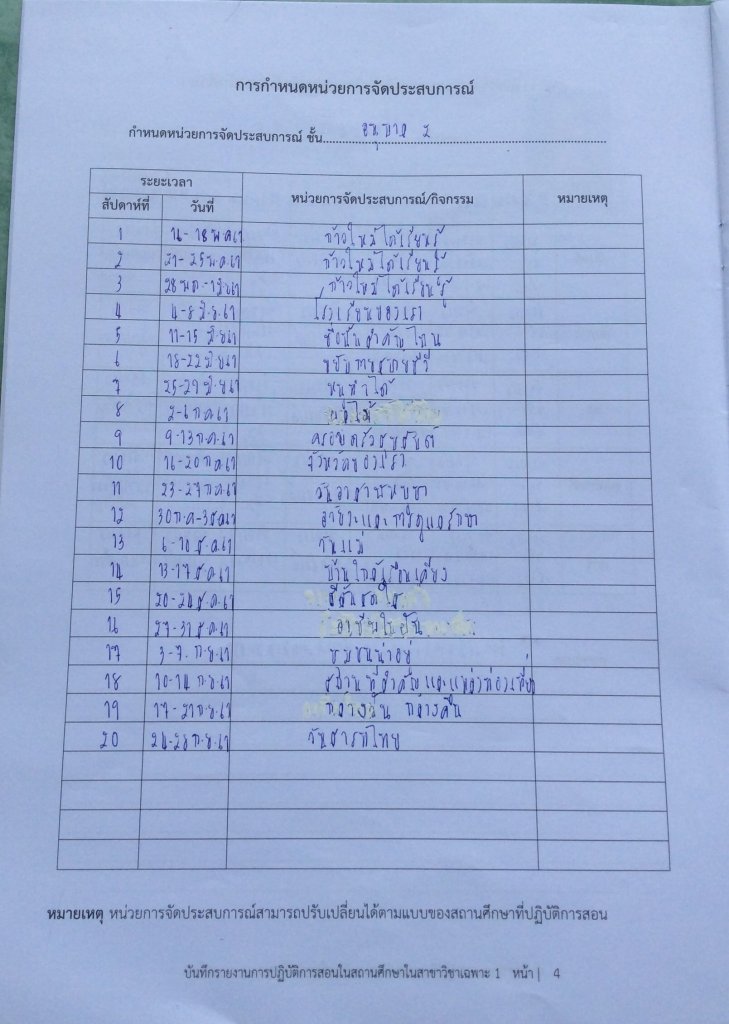 การกำหนดหน่วยการจัดประสบการณ์
กำหนดหน่วยการจัดประสบการณ์ ชั้น อนุบาล 2
ระยะเวลา หน่วยการจัดประสบการณ์/กิจกรรม หมายเหตุ
สัปดาห์ที่ วันที่
1 16-18 พ.ค 61 ก้าวใหม่ได้เรียนรู้
2 21-25 พ.ค 61 ก้าวใหม่ได้เรียนรู้
3 28 พ.ค.-1 มิ.ย 61 ก้าวใหม่ได้เรียนรู้
4 4-8 มิ.ย. 61 โรงเรียนของเรา
5 11-15 มิ.ย 61 ชื่อนั้นสำคัญไฉน
6 18-22 มิ.ย 61 ขยับกายสบายชีวี
7 25-29 มิ.ย 61 หนูทำได้
8 2-6 ก.ค 61
9 9-13 ก.ค. 61 ครอบครัวสุขสันต์
10 16-20 ก.ค 61 จังหวัดของเรา
11 23-27 ก.ค 61 วันอาสาฬหบูชา
12 30 ก.ค-3 ส.ค 61 อวัยวะและการดูแลรักษา
13 6-10 ส.ค. 61 วันแม่
14 13-17 ส.ค 61 บ้านใกล้เรือนเคียง
15 20-24 ส.ค. 61
16 27-31 ส.ค. 61
17 3-7 ก.ย. 61 ชุมชนน่าอยู่
18 10-14 ก.ย. 61 สถานที่สำคัญและแหล่งท่องเที่ยว
19 17-21 ก.ย. 61 กลางวัน กลางคืน
20 24-28 ก.ย. 61 วันสารทไทย
หมายเหตุ หน่วยการจัดประสบการณ์สามารถปรับเปลี่ยนได้ตามแบบของสถานศึกษาที่ปฏิบัติการสอน
บันทึกรายงานการปฏิบัติการสอนในสถานศึกษาในสาขาวิชาเฉพาะ 1 หน้า | 4